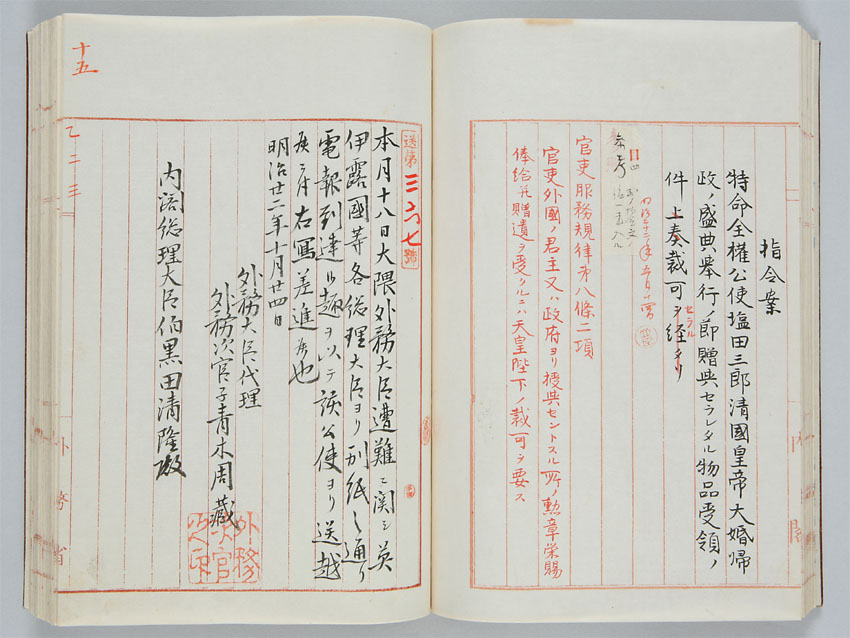 指令案
特命全權公使塩田三郎清國皇帝大婚帰
政ノ盛典舉行ノ節贈與セラレタル物品受領ノ
件上奏裁可ヲ経タリ
セラル
参考
官吏服務規律第八條二項
官吏外國ノ君主又ハ政府ヨリ授與セントスル所ノ勲章榮賜
俸給並贈遺ヲ受クルニハ天皇陛下ノ裁可ヲ要ス
内閣
十五
乙二三
送第三六七號
本月十八日大隈外務大臣遭難ニ関シ英
伊露國等各総理大臣ヨリ別紙之通リ
電報到達ル趣ヲ以テ該公使ヨリ送越
候ニ付右寫差進候也
明治廿二年十月廿四日
外務大臣代理
外務次官子青木周藏
外務次官之印
内閣総理大臣伯黒田清隆殿
外務省